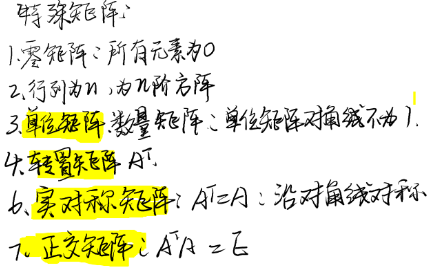 特殊矩阵:
1.零矩阵:所有元素为0
2.行列为n,为n阶方阵
3.单位矩阵.数量矩阵:单位矩阵对角线不为1.
4.转置矩阵 Aᵀ.
6、实对称矩阵:Aᵀ=A:沿对角线对称
7、正交矩阵:AᵀA=E